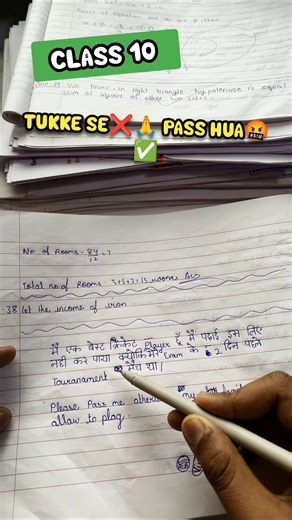 CLASS 10
TUKKE SE❌🙏 PASS HUA🤬
✅
We know in right triangle hypotenuse is equal
sum of square of other two sides.
No of Rooms = 84/12 = 7
Total no of Rooms = 3+5+7=15 rooms Ans
38 Let the income of
मैं एक बेस्ट क्रिकेट Player हूँ मैं पढ़ाई इस लिए
नहीं कर पाया क्योंकि मेरे Exam के 2 दिन पहले
Touranament मैच था।
Please Pass me my
allow to play.